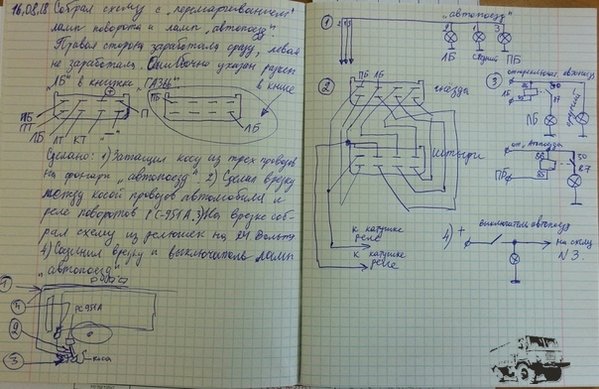 16.08.18 Собрал схему с „перемаргиванием"
ламп поворота и ламп „автопоезд".
Правая сторона заработала сразу, левая
не заработала. Ошибочно указан разъем
„ЛБ" в книжке „ГАЗ66"
в книге
ПБ
ПБ
П
ЛБ
ПТ
ЛБ
ЛТ
КТ
Сделано: 1) Затащил косу из трех проводов
на фонари „автопоезд" 2) Сделал врезку
между косой проводов автомобиля и
реле поворотов РС-951А. 3) На врезке соб-
рал схему из релюшек на 24 Вольта
4) Соединил врезку и выключатель ламп
„автопоезд"
1
4
РС951А
2
3
коса
1
„автопоезд"
2 1 3
2
1
3
ЛБ
Средний
ПБ
2
ПБ
ЛБ
гнезда
штыри
к катушке
реле
к катушке
реле
3
ЛБ
30
средний
ПБ
86
85
30
87
4) +
выключатель автопоезд
на схему
N 3.